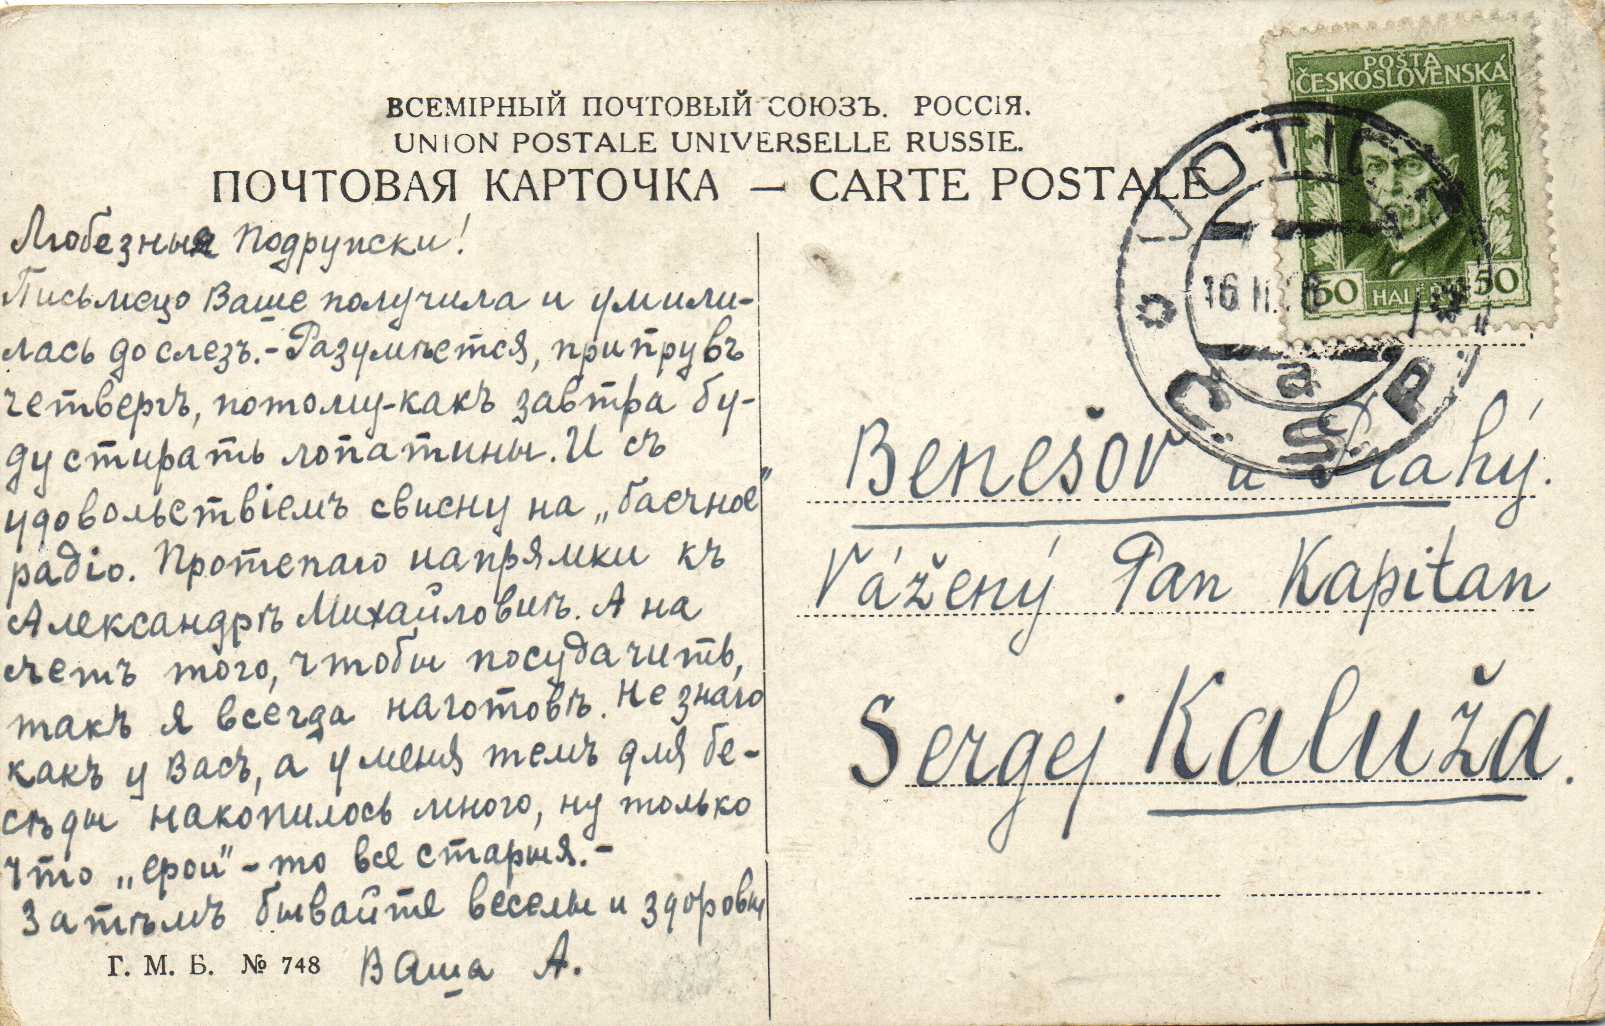 ВСЕМІРНЫЙ ПОЧТОВЫЙ СОЮЗЪ. РОССІЯ.
UNION POSTALE UNIVERSELLE RUSSIE.
ПОЧТОВАЯ КАРТОЧКА — CARTE POSTALE
Любезныя Подрупски!
Письмецо Ваше получила и умили-
лась до слезъ.- Разумѣется, припру въ
четвергъ, потому-какъ завтра бу-
ду стирать лопатины. И съ
удовольствіемъ свисну на „баечное"
радіо. Протепаю напрямки къ
Александрѣ Михайловнѣ. А на
счетъ того, чтобы посудачить,
такъ я всегда наготовѣ. Не знаю
какъ у Васъ, а у меня темъ для бе-
сѣды накопилось много, ну только
что „ерои" - то все старыя.-
Затѣмъ бывайте веселы и здоровы
Ваша А.
Г. М. Б. № 748
POŠTA
ČESKOSLOVENSKÁ
50 HALÉŘŮ 50
VOTICE
16 II
a
Č.S.P.
Benešov u Prahy.
Vážený Pan Kapitan
Sergej Kaluža.